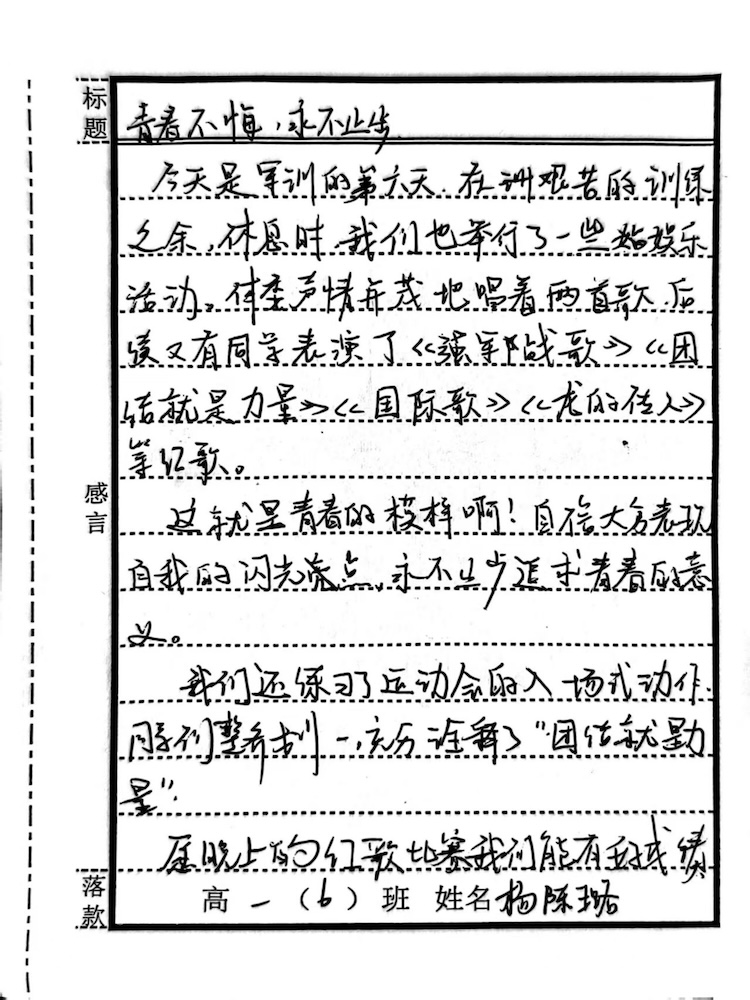 标题
青春不悔，永不止步
今天是军训的第六天.在训艰苦的训练
之余,休息时,我们也举行了一些娱乐
活动。体委声情并茂地唱着两首歌.后
续又有同学表演了《强军战歌》《团
结就是力量》《国际歌》《龙的传人》
等红歌。
感言
这就是青春的模样啊！自信大方表现
自我的闪光亮点,永不止步追求青春的意
义。
我们还练习了运动会的入场式动作.
同学们整齐划一,充分诠释了“团结就是力
量”.
晚上的红歌比赛我们能有好成绩
落款
高一（6）班 姓名杨陈璐